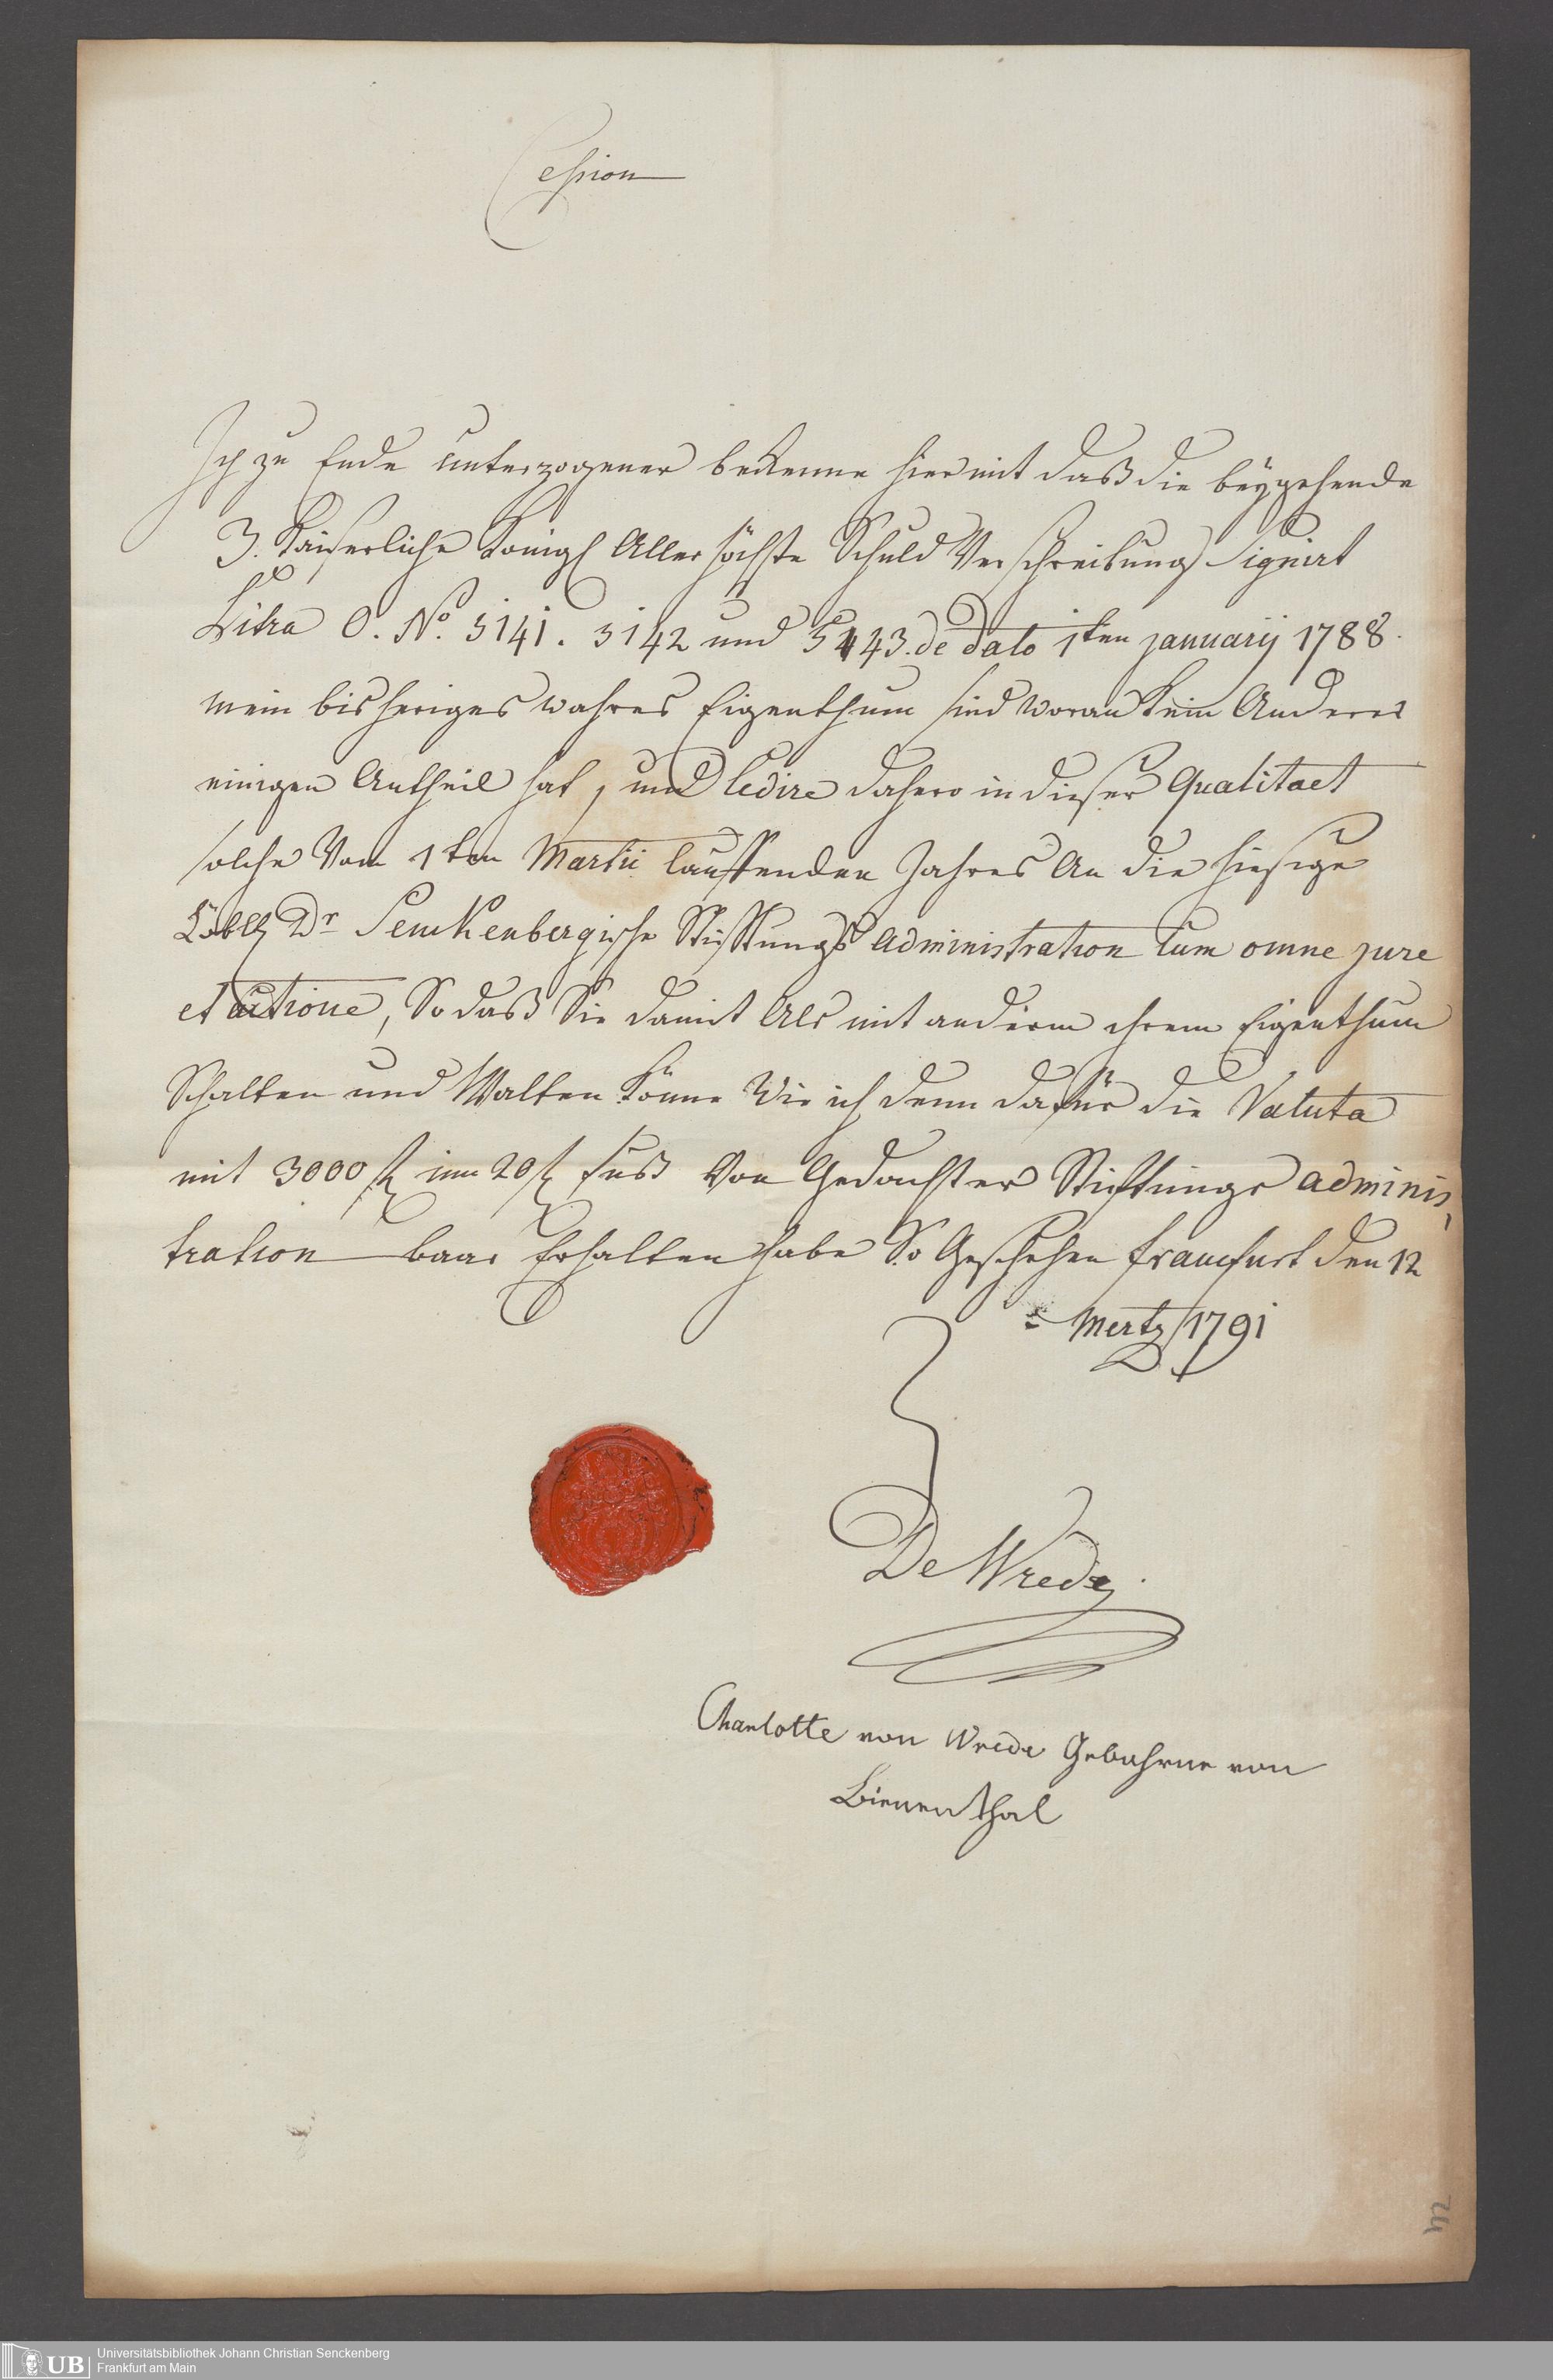 Cession
Ich zu Ende unterzogener bekenne hiermit daß die beÿgehende
3. Kaiserliche Königl Allerhöchste Schuld Verschreibung Signirt
Litra O. No. 5141. 5142 und 5143. de dato 1ten januarij 1788.
mein bisheriges wahres Eigenthum sind woran kein Anderer
einigen Antheil hat, und Cedire dahero in dieser Qualitaet
solche Vom 1ten Martii lauffenden Jahres An die hiesige
Löbl Dr Senckenbergische Stifftungs Administration Cum omne jure
et actione, So daß Sie damit Als mit anderm ihrem Eigenthum
Schalten und Walten könne Wie ich denn dafür die Valuta
mit 3000 fl im 20 fl Fuß Von Gedachter Stiftungs adminis,
tration baar Erhalten habe So Geschehen franckfurt den 12
Mertz 1791
De Wrede.
Charlotte von Wrede Gebohrne von
Bienenthal
UB
Universitätsbibliothek Johann Christian Senckenberg
Frankfurt am Main